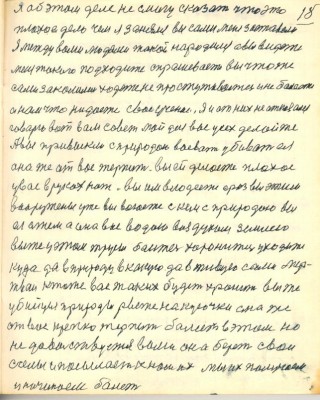 Я об этом деле не смогу сказат что это 18
плохое дело чем я заневы вы сами меня заставили
Я между вами людями такой народину свы видете
меня такого подходите спрашеваете вы что же
сами законными ходите не проступаетесь и не болеете
а нам что нидаете свое учение. Я и от них не отказаны
говорю вот вам совет мой для вас усех делайте
А вы привыкли с природою воеват убиват ея
она же от вас терпит. вы ей делаете плохое
у вас в руках нож. вы им владеете ораз вы этим
вооружены уже вы воюете с кем с природою вы
ея а тем а она все водою воздухом землею
вы же у этом трупы баетес хоронитес уходите
куда да в природу в какую да в тившую сами мер-
твая кто же вас таких будет хранит вы же
убийцы природы режете на кусочки она же
от вас крепко терпит болеет в этом но
не довольствуется вами она берет свои
силы и посылает к нам их мы их получаем
и начинаем болет